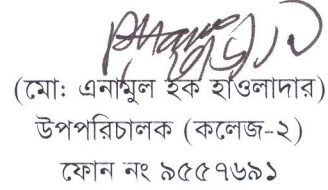 (মো: এনামুল হক হাওলাদার)
উপপরিচালক (কলেজ-২)
ফোন নং ৯৫৫৭৬৯১